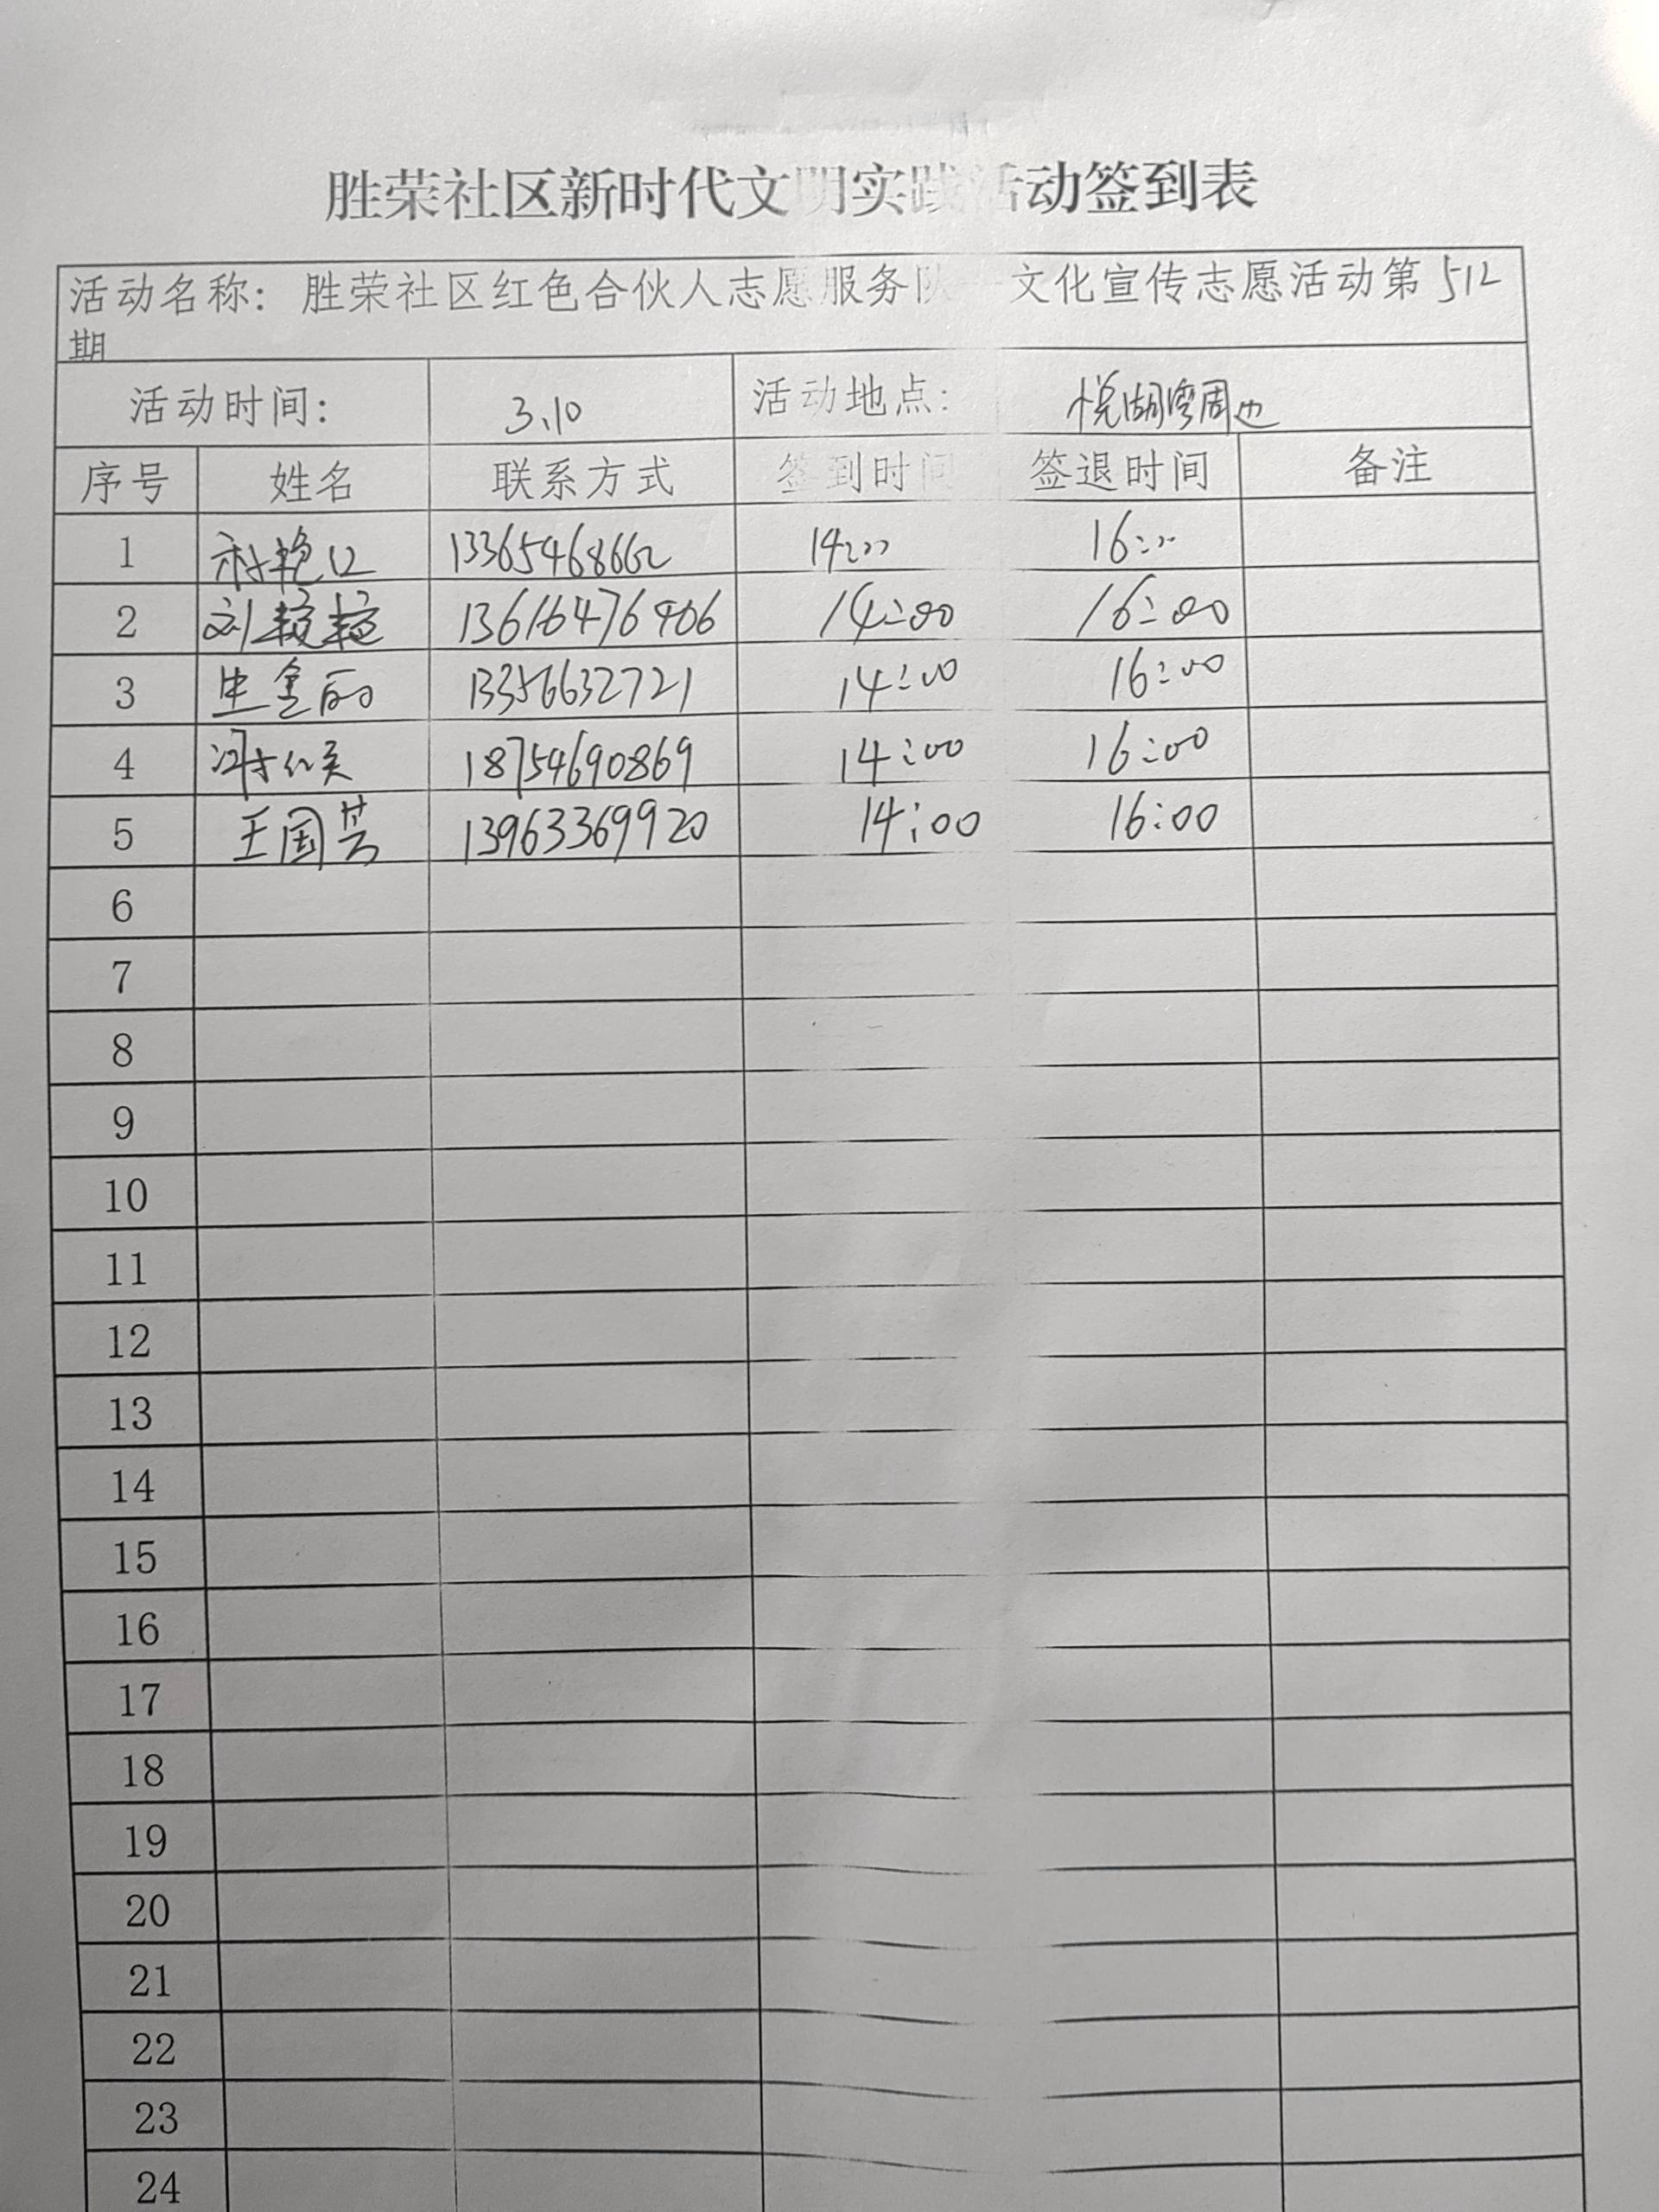 胜荣社区新时代文明实践活动签到表
活动名称：胜荣社区红色合伙人志愿服务队--文化宣传志愿活动第512
期
活动时间： 3.10 活动地点： 悦湖湾周边
序号 姓名 联系方式 签到时间 签退时间 备注
1 13365468662 14:00 16:00
2 刘 13616476906 14:00 16:00
3 13356632721 14:00 16:00
4 18754690869 14:00 16:00
5 王国芸 13963369920 14:00 16:00
6
7
8
9
10
11
12
13
14
15
16
17
18
19
20
21
22
23
24